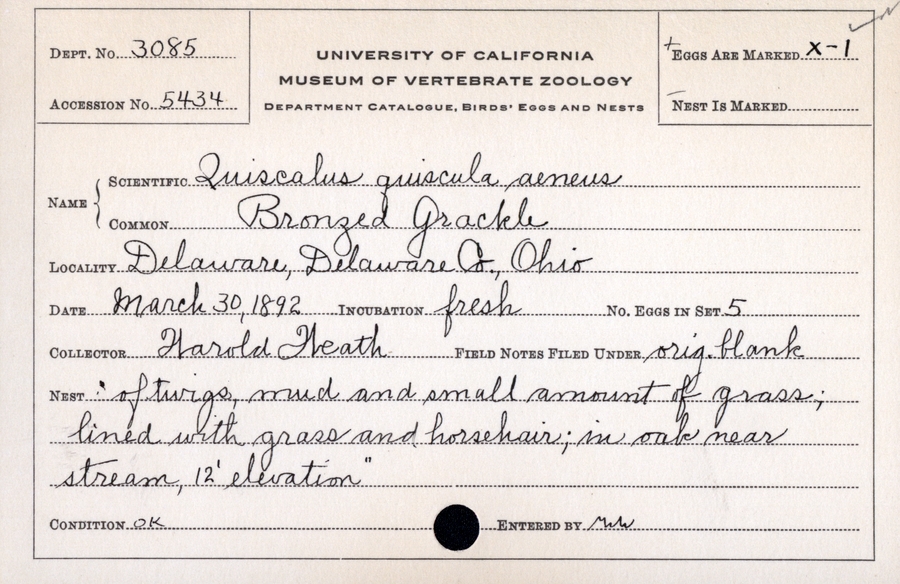 Dept. No. 3085
Accession No. 5434
UNIVERSITY OF CALIFORNIA
MUSEUM OF VERTEBRATE ZOOLOGY
Department Catalogue, Birds' Eggs and Nests
+ Eggs Are Marked X-1
Nest Is Marked
Name
Scientific Quiscalus quiscula aeneus
Common Bronzed Grackle
Locality Delaware, Delaware Co., Ohio
Date March 30, 1892 Incubation fresh No. Eggs in Set 5
Collector Harold Heath Field Notes Filed Under orig. blank
Nest "of twigs, mud and small amount of grass;
lined with grass and horsehair; in oak near
stream, 12' elevation"
Condition OK Entered by